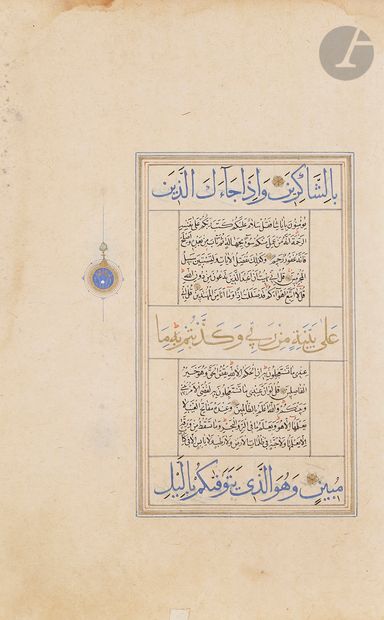 بِالشَّاكِرِينَ وَإِذَا جَاءَكَ الَّذِينَ
يؤمنون بآياتنا فقل سلام عليكم كتب ربكم على نفسه
الرحمة أنه من عمل منكم سوءا بجهالة ثم تاب من بعده وأصلح
فأنه غفور رحيم وكذلك نفصل الآيات ولتستبين سبيل
المجرمين قل إني نهيت أن أعبد الذين تدعون من دون الله
قل لا أتبع أهواءكم قد ضللت إذا وما أنا من المهتدين قل إني
عَلَى بَيِّنَةٍ مِنْ رَبِّي وَكَذَّبْتُمْ بِهِ مَا
عندي ما تستعجلون به إن الحكم إلا لله يقص الحق وهو خير
الفاصلين قل لو أن عندي ما تستعجلون به لقضي الأمر بيني
وبينكم والله أعلم بالظالمين وعنده مفاتح الغيب لا
يعلمها إلا هو ويعلم ما في البر والبحر وما تسقط من ورقة
إلا يعلمها ولا حبة في ظلمات الأرض ولا رطب ولا يابس إلا في كتاب
مُبِينٍ وَهُوَ الَّذِي يَتَوَفَّيكُمْ بِالَّيْلِ